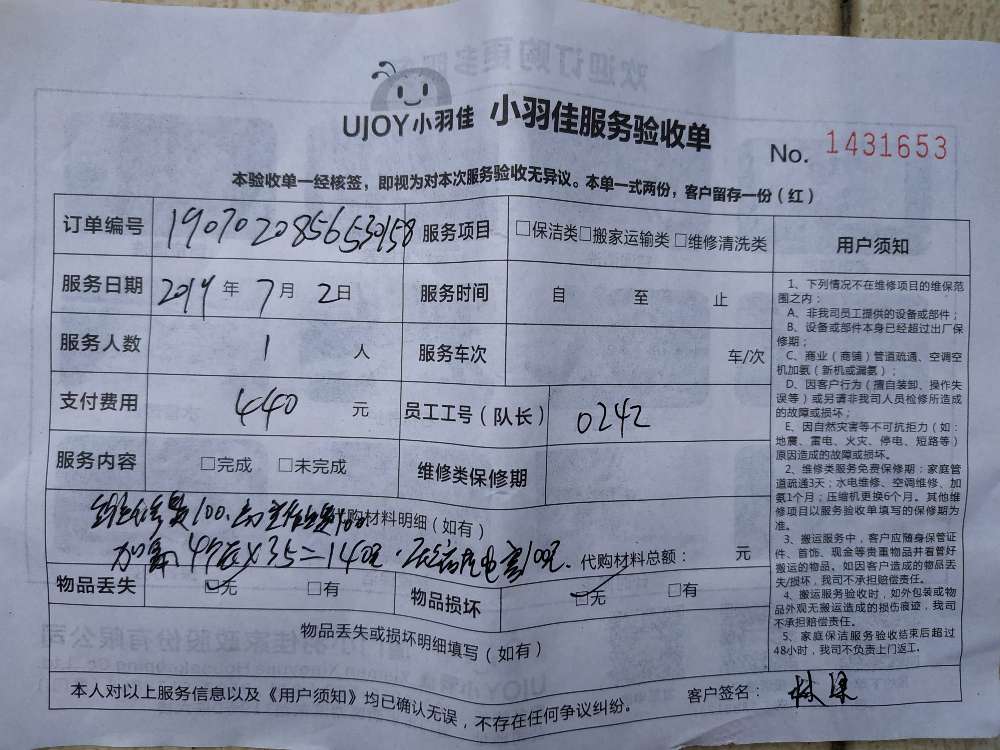 UJOY小羽佳 小羽佳服务验收单
No. 1431653
本验收单一经核签，即视为对本次服务验收无异议。本单一式两份，客户留存一份（红）
订单编号 1907020856530158 服务项目 □保洁类□搬家运输类 □维修清洗类
服务日期 2019 年 7 月 2 日 服务时间 自 至 止
服务人数 1 人 服务车次 车/次
支付费用 440 元 员工工号（队长） 0242
服务内容 □完成 □未完成 维修类保修期
100. 代购材料明细（如有）
加氟 4 X35=140元. 100元. 代购材料总额： 元
物品丢失 □无 □有 物品损坏 □无 □有
物品丢失或损坏明细填写（如有）
本人对以上服务信息以及《用户须知》均已确认无误，不存在任何争议纠纷。 客户签名： 林
用户须知
1、下列情况不在维修项目的维保范
围之内：
A、非我司员工提供的设备或部件；
B、设备或部件本身已经超过出厂保
修期；
C、商业（商铺）管道疏通、空调空
机加氨（新机或漏氨）；
D、因客户行为（擅自装卸、操作失
误等）或另请非我司人员检修所造成
的故障或损坏；
E、因自然灾害等不可抗拒力（如：
地震、雷电、火灾、停电、短路等）
原因造成的故障或损坏。
2、维修类服务免费保修期：家庭管
道疏通3天；水电维修、空调维修、加
氨1个月；压缩机更换6个月。其他维
修项目以服务验收单填写的保修期为
准。
3、搬运服务中，客户应随身保管证
件、首饰、现金等贵重物品并看管好
搬运的物品。如因客户造成的物品丢
失/损坏，我司不承担赔偿责任。
4、搬运服务验收时，如外包装或物
品外观无搬运造成的损伤痕迹，我司
不承担赔偿责任。
5、家庭保洁服务验收结束后超过
48小时，我司不负责上门返工。